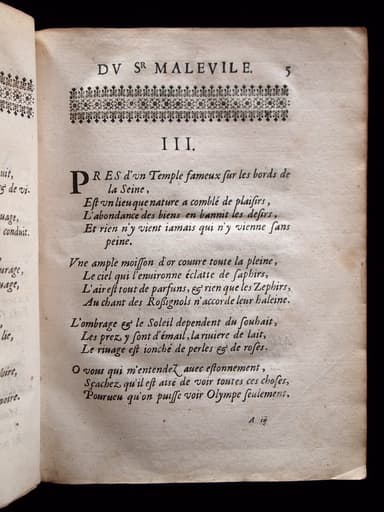 uit,
& de vi-
uage,
conduit.
urage,
uage,
lie,
loire,
moire.
DV Sʳ MALEVILE. 5
III.
PRES d'vn Temple fameux sur les bords de
la Seine,
Est vn lieu que nature a comblé de plaisirs,
L'abondance des biens en bannit les desirs,
Et rien n'y vient iamais qui n'y vienne sans
peine.
Vne ample moisson d'or couure toute la pleine,
Le ciel qui l'enuironne éclatte de saphirs,
L'air est tout de parfuns, & rien que les Zephirs,
Au chant des Rossignols n'accorde leur haleine.
L'ombrage & le Soleil dependent du souhait,
Les prez y sont d'émail, la riuiere de lait,
Le riuage est ionché de perles & de roses.
O vous qui m'entendez auec estonnement,
Sçachez qu'il est aisé de voir toutes ces choses,
Pourueu qu'on puisse voir Olympe seulement.
A iij